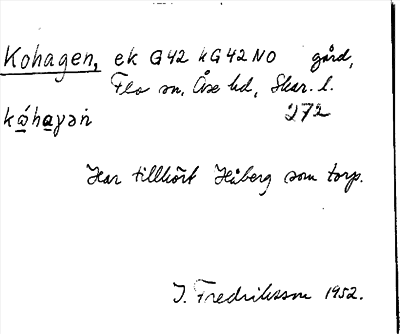 Kohagen, ek G42 k G42 NO gård,
Flo sn, Åse hd, Skar. l.
kǻhaγən 272
Har tillhört Håberg som torp.
I. Fredriksson 1952.